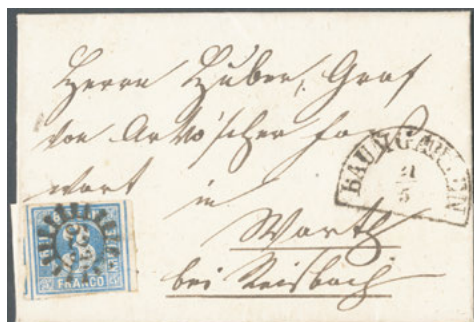 Herrn Huber, Graf
von Arco'scher
wart in
Warth
bei Reisbach
BAUMGARTEN
21
5
FRANCO